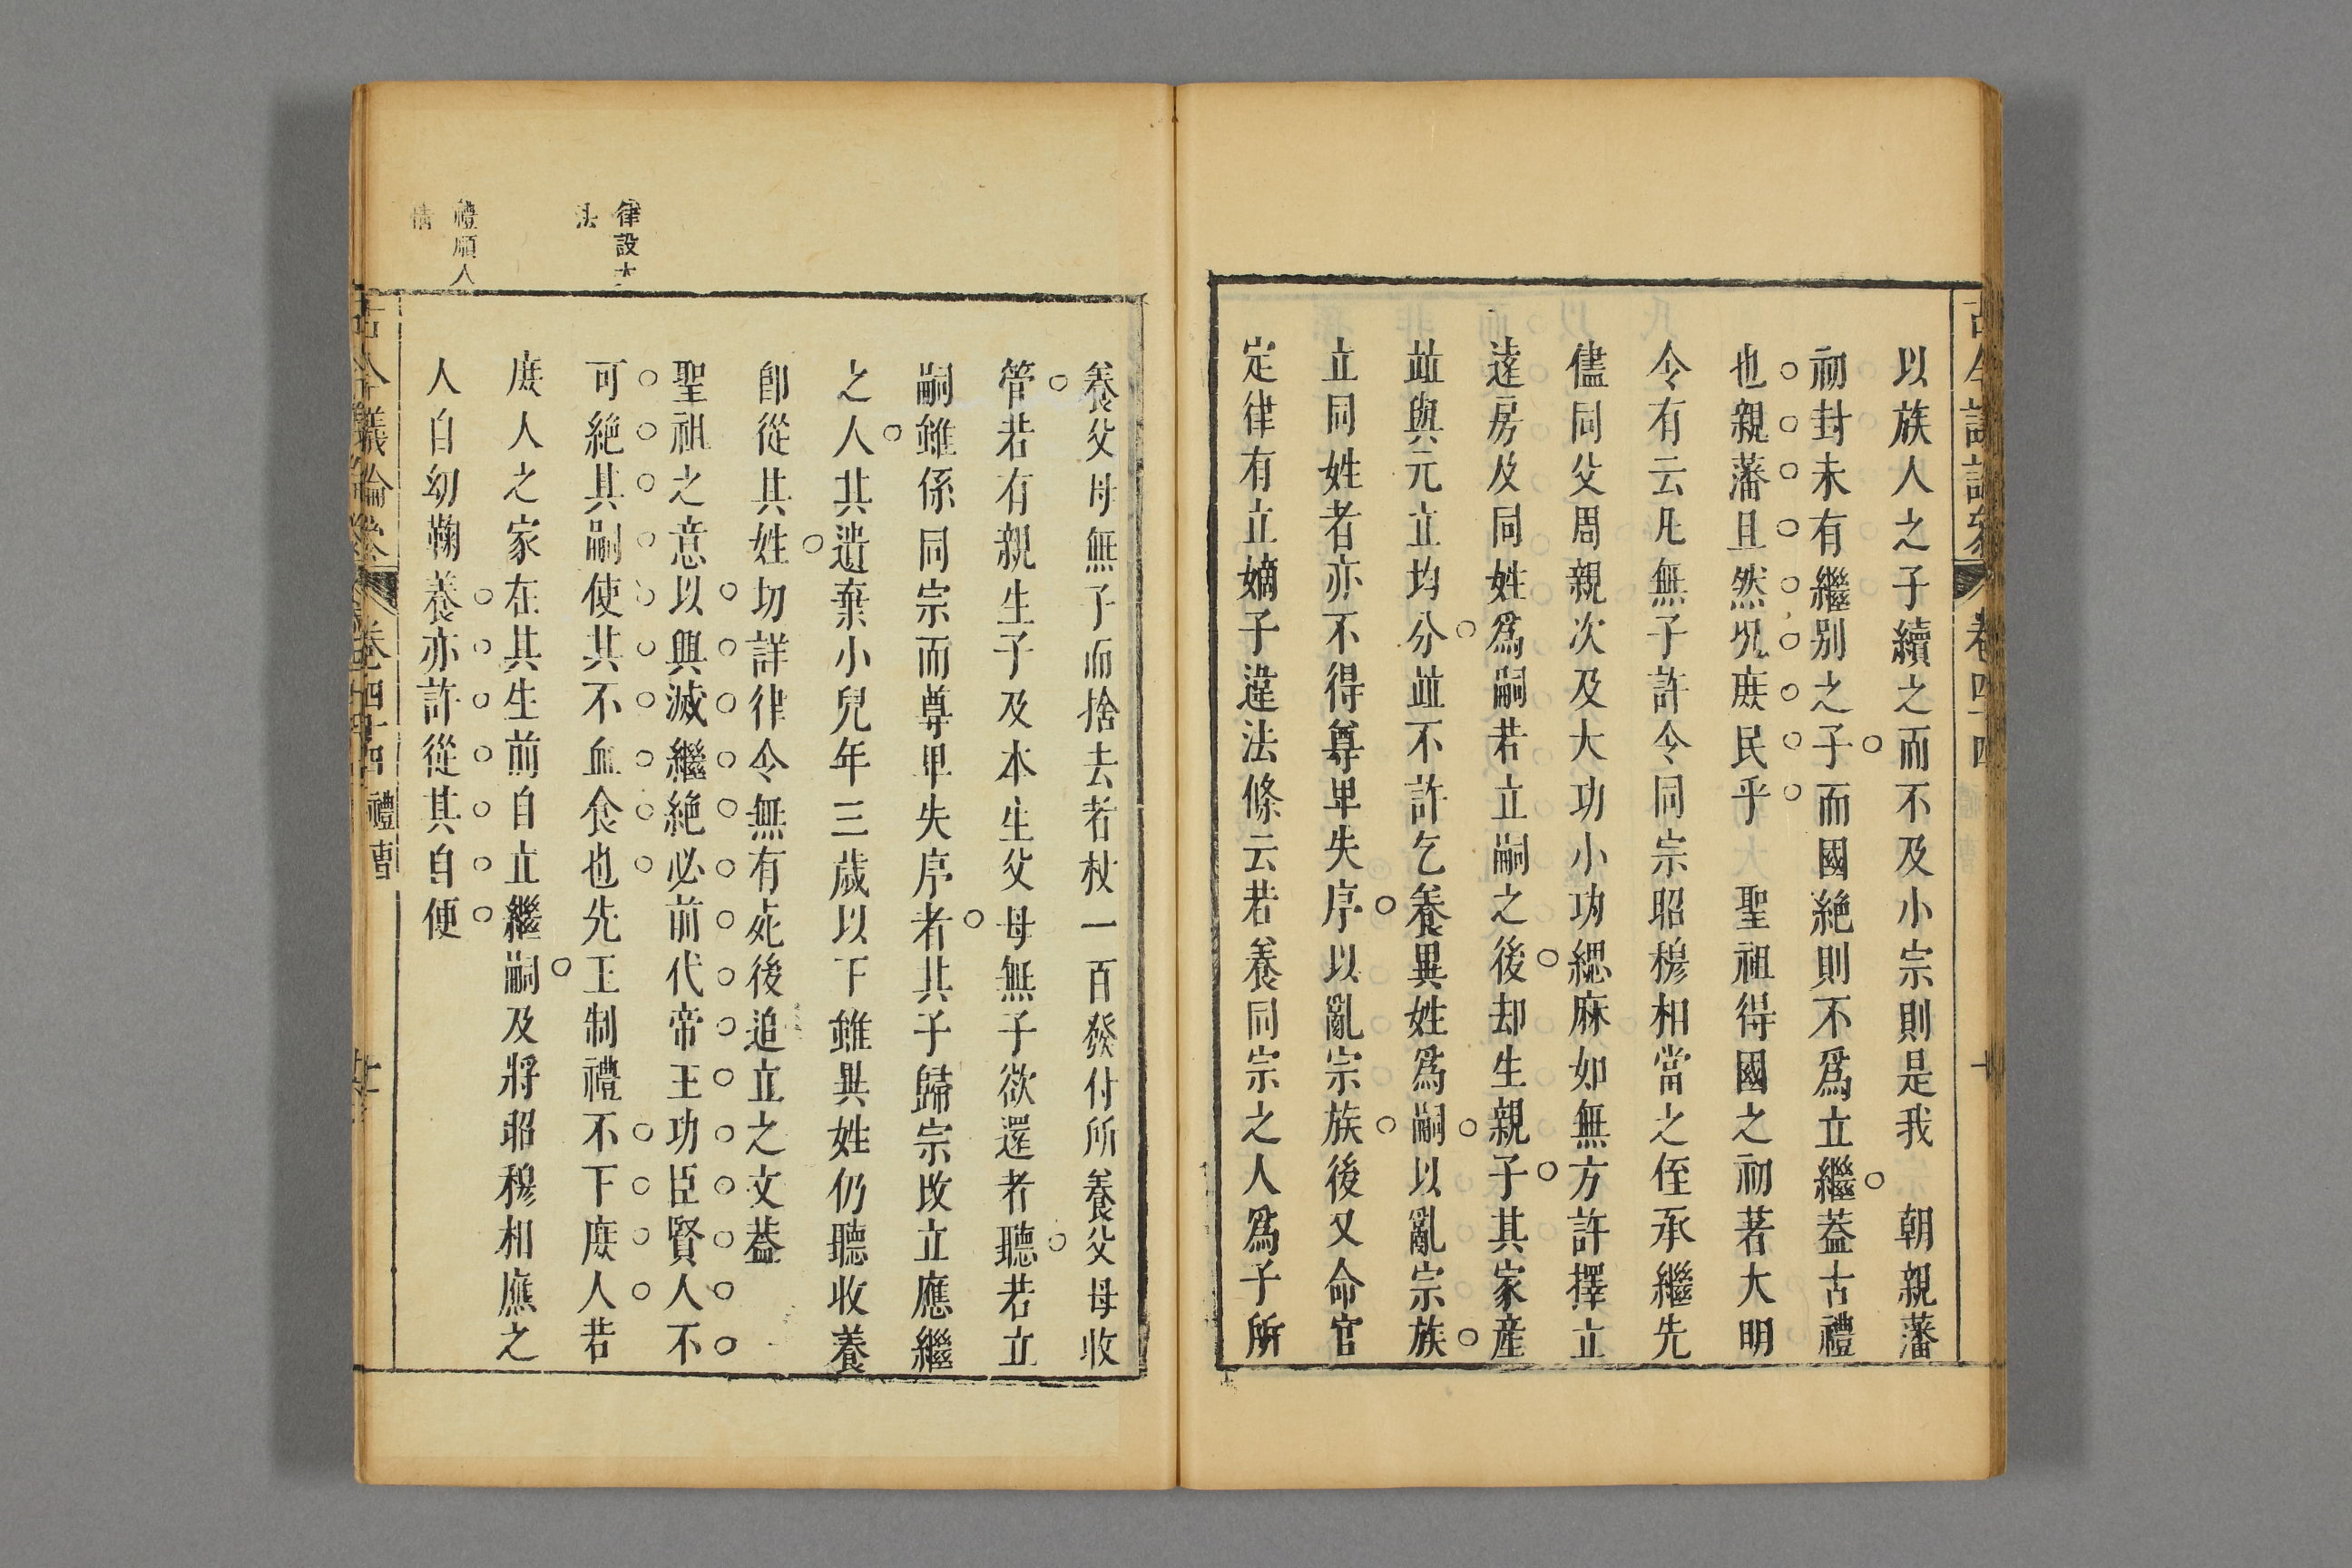 以族人之子續之而不及小宗則是我 朝親藩
初封未有繼别之子而國絶則不爲立繼葢古禮
也親藩且然況庻民乎 聖祖得國之初著大明
令有云凡無子許令同宗昭穆相當之侄承繼先
儘同父周親次及大功小功緦麻如無方許擇立
逺房及同姓爲嗣若立嗣之後却生親子其家産
並與元立均分並不許乞養異姓爲嗣以亂宗族
立同姓者亦不得尊卑失序以亂宗族後又命官
定律有立嫡子違法條云若養同宗之人爲子所
養父母無子而捨去者杖一百發付所養父母收
管若有親生子及本生父母無子欲還者聽若立
嗣雖係同宗而尊卑失序者其子歸宗改立應繼
之人其遺棄小兒年三歲以下雖異姓仍聽收養
卽從其姓切詳律令無有死後追立之文葢
聖祖之意以興滅繼絶必前代帝王功臣賢人不
可絶其嗣使其不血食也先王制禮不下庻人若
庻人之家在其生前自立繼嗣及將昭穆相應之
人自幼鞠養亦許從其自便
律設大
法
禮順人
情
卷四十四
禮曹